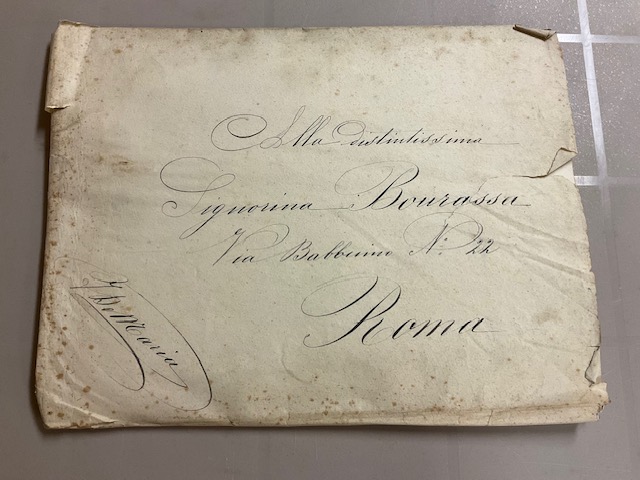 Alla distintissima
Signorina Bourassa
Via Babbuino N: 22
Roma
De Maria